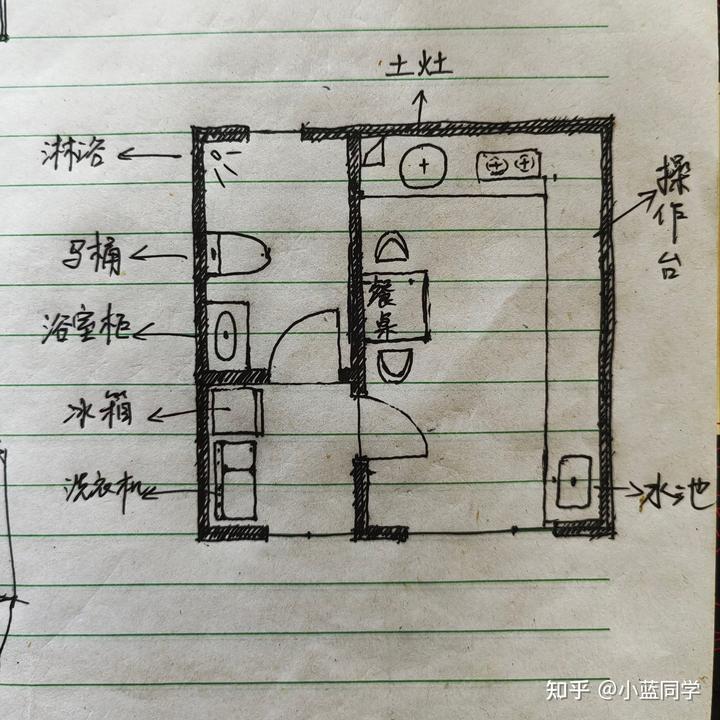 土灶
淋浴
操作台
马桶
餐桌
浴室柜
冰箱
洗衣机
水池
知乎 @小蓝同学